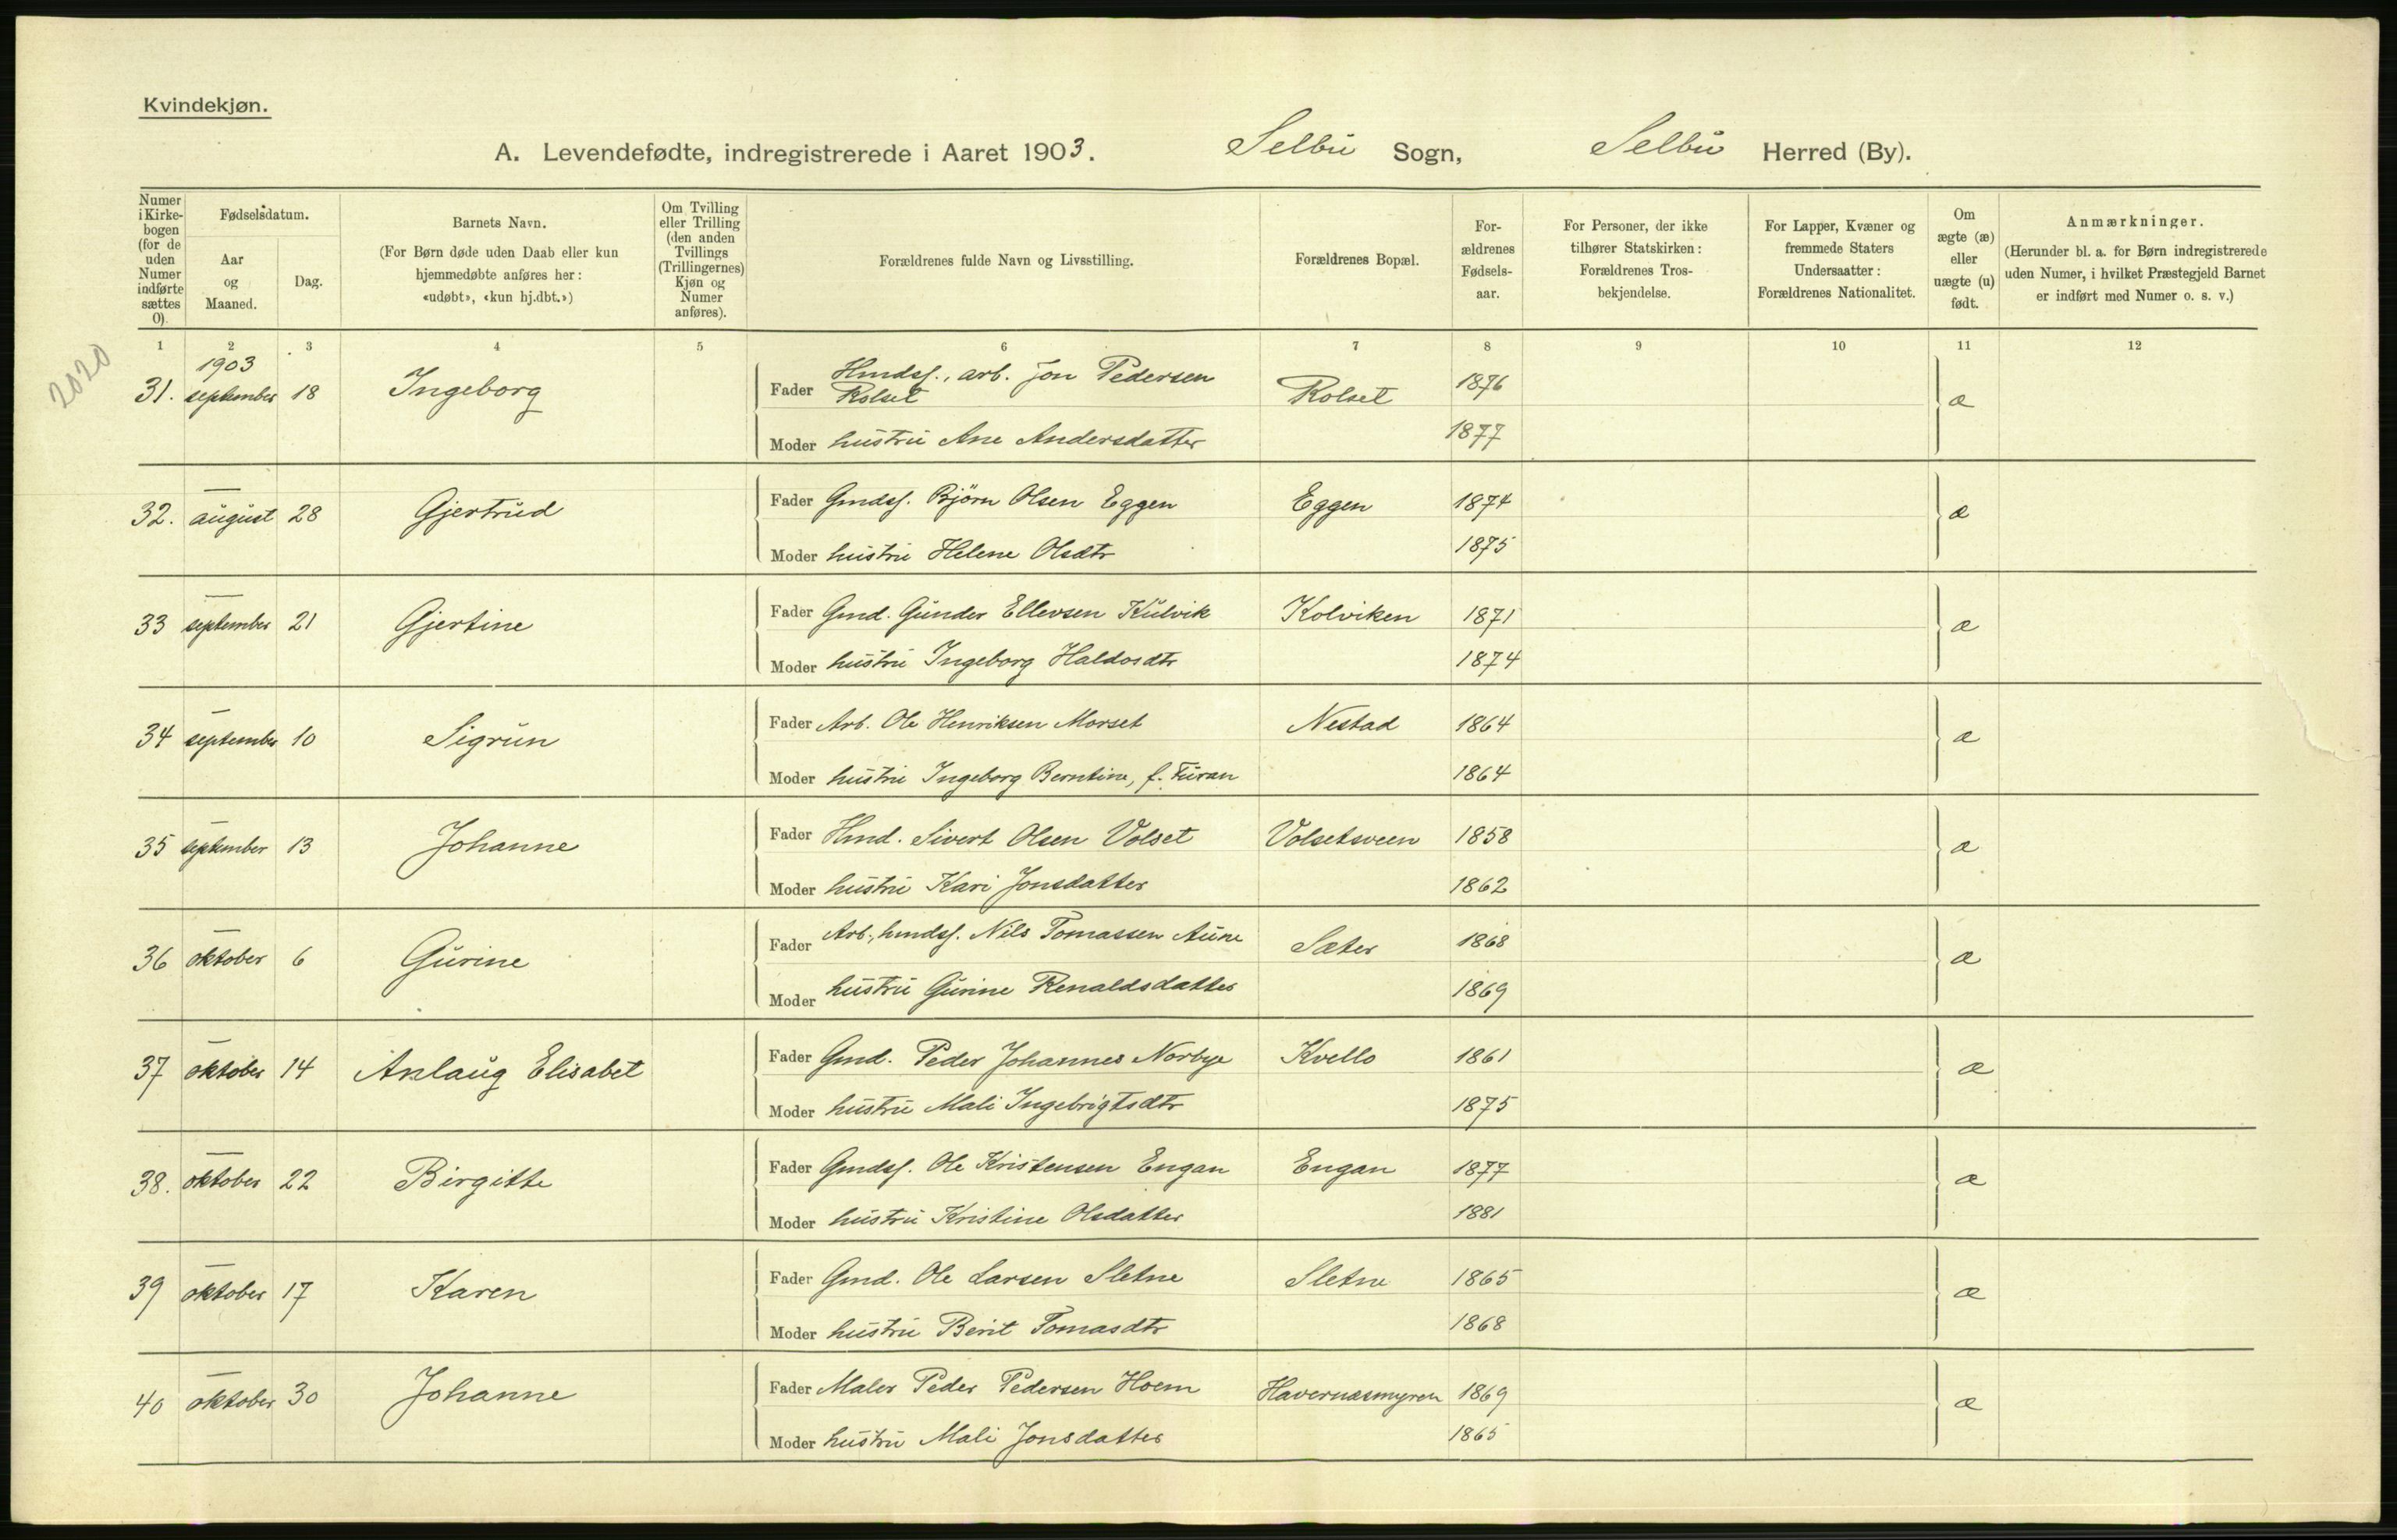 Kvindekjøn.
A. Levendefødte, indregistrerede i Aaret 1903. Selbu Sogn, Selbu Herred (By).
Numer i Kirkebogen (for de uden Numer indførte sættes 0).
Fødselsdatum.
Aar og Maaned.
Dag.
Barnets Navn.
(For Børn døde uden Daab eller kun hjemmedøbte anføres her: «udøbt», «kun hj.dbt.»)
Om Tvilling eller Trilling (den anden Tvillings (Trillingernes) Kjøn og Numer anføres).
Forældrenes fulde Navn og Livsstilling.
Forældrenes Bopæl.
Forældrenes Fødselsaar.
For Personer, der ikke tilhører Statskirken: Forældrenes Trosbekjendelse.
For Lapper, Kvæner og fremmede Staters Undersaatter: Forældrenes Nationalitet.
Om ægte (æ) eller uægte (u) født.
Anmærkninger.
(Herunder bl. a. for Børn indregistrerede uden Numer, i hvilket Præstegjeld Barnet er indført med Numer o. s. v.)
1 2 3 4 5 6 7 8 9 10 11 12
2020
1903
31. september 18 Ingeborg Fader Hmdsf., arb. Jon Pedersen Rolset Rolset 1876 æ
Moder hustru Ane Andersdatter 1877
32. — august 28 Gjertrud Fader Gmdsf. Bjørn Olsen Eggen Eggen 1874 æ
Moder hustru Helene Olsdtr 1875
33 — september 21 Gjertine Fader Gmd. Gunder Ellevsen Kulvik Kolviken 1871 æ
Moder hustru Ingeborg Haldosdtr 1874
34 — september 10 Sigrun Fader Arb. Ole Henriksen Morset Nestad 1864 æ
Moder hustru Ingeborg Berntine, f. Furan 1864
35 — september 13 Johanne Fader Hmd. Sivert Olsen Volset Volsetsveen 1858 æ
Moder hustru Kari Jonsdatter 1862
36 — oktober 6 Gurine Fader Arb., hmdsf. Nils Tomassen Aune Sæter 1868 æ
Moder hustru Gurine Renaldsdatter 1869
37 — oktober 14 Aslaug Elisabet Fader Gmd. Peder Johannes Norbye Kvello 1861 æ
Moder hustru Mali Ingebrigtsdtr 1875
38. — oktober 22 Birgitte Fader Gmdsf. Ole Kristensen Engan Engan 1877 æ
Moder hustru Kristine Olsdatter 1881
39 — oktober 17 Karen Fader Gmd. Ole Larsen Sletne Sletne 1865 æ
Moder hustru Berit Tomasdtr 1868
40 — oktober 30 Johanne Fader Maler Peder Pedersen Hoem Havernæsmyren 1869 æ
Moder hustru Mali Jonsdatter 1865